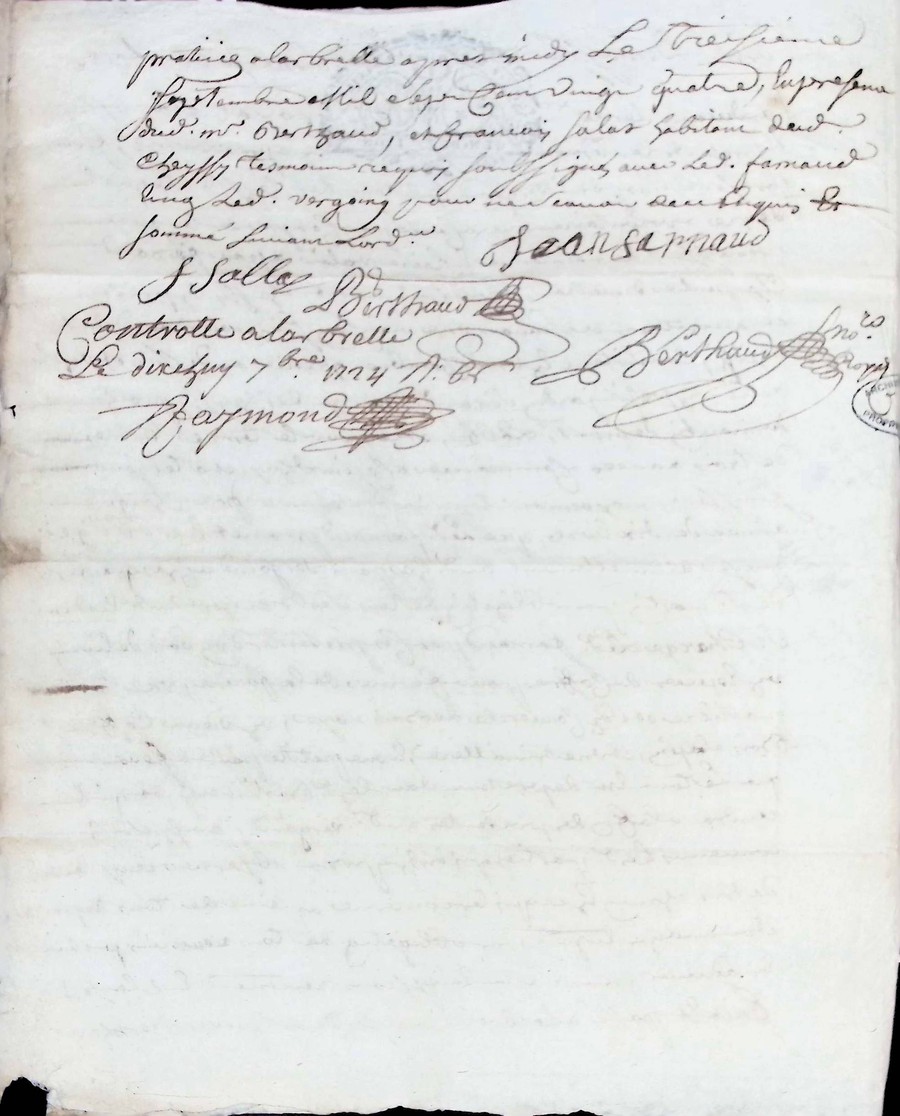 praticq a larbrelle apres midy Le treisieme
septembre Mil sept Cent vingt quatre, En presence
dud. mr. Berthaud, et francois salas habitant dud.
Cheyssy tesmoins requis soubssignes avec Led. farnaud
Led. vergoing pour ne scavoir de ce Enquis Et
sommé suivant Lord.ce
Jean farnaud
f Salla
Berthaud
Controlle a larbrelle
Le dixehuy 7bre 1724
Berthaud no.re Royal
Raymond